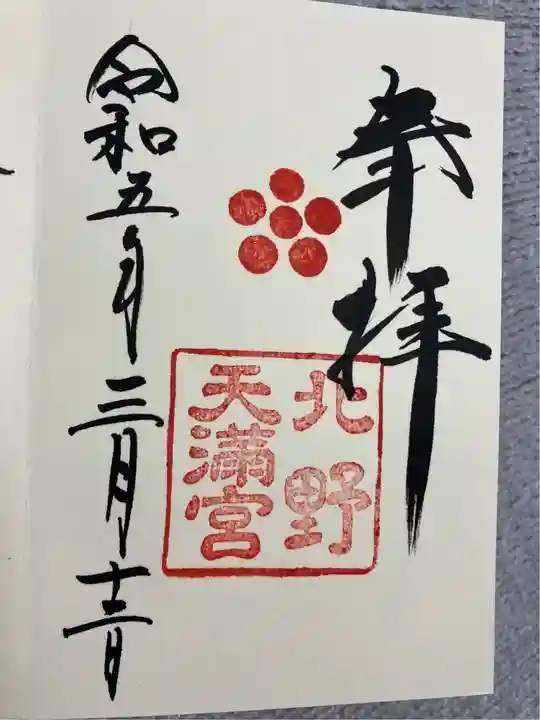 奉拝
北野
天満宮
令和五年三月十三日